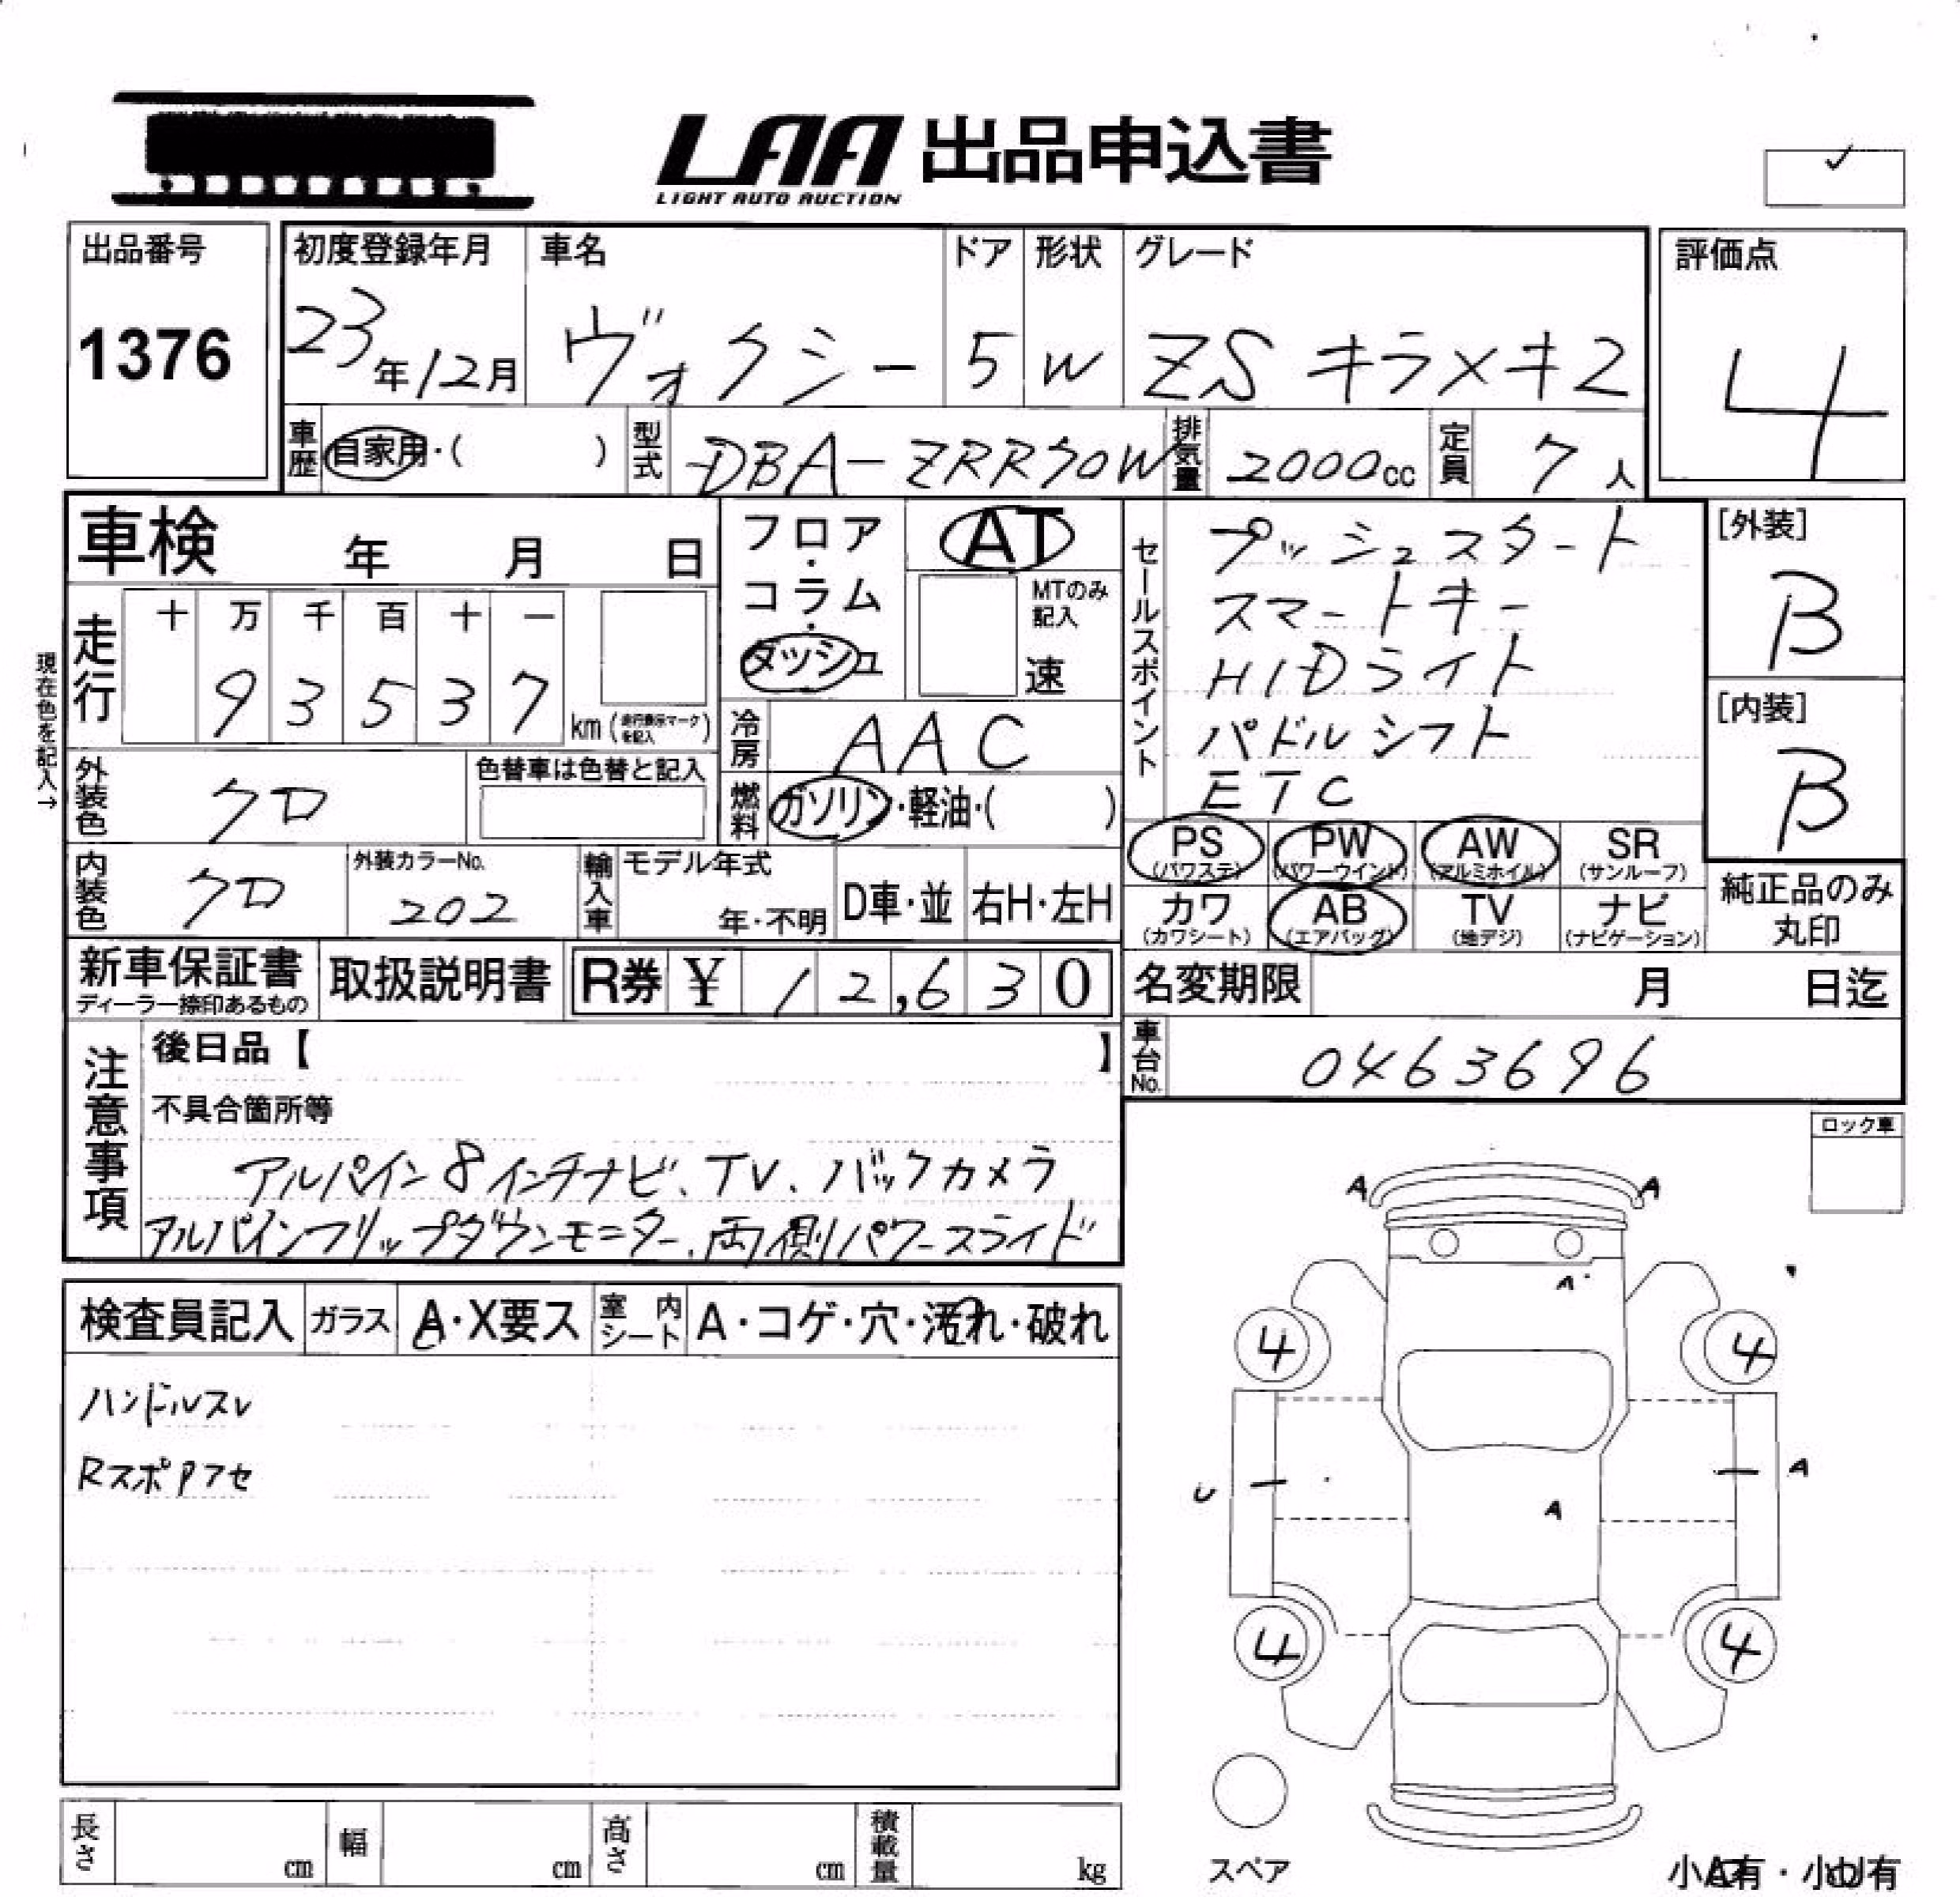 LAA 出品申込書
LIGHT AUTO AUCTION
出品番号
1376
初度登録年月 車名 ドア 形状 グレード
23年12月 ヴォクシー 5 W ZS キラメキ2
評価点
4
車歴 自家用・( ) 型式 DBA-ZRR70W 排気量 2000cc 定員 7人
車検 年 月 日
フロア・コラム・ダッシュ
AT
MTのみ記入
速
走行 十 万 千 百 十 一
9 3 5 3 7 km (走行表示マークを記入)
現在色を記入→
冷房 AAC
燃料 ガソリン・軽油・( )
外装色 クロ
色替車は色替と記入
内装色 クロ
外装カラーNo.
202
輸入車 モデル年式
年・不明 D車・並 右H・左H
セールスポイント
プッシュスタート
スマートキー
HIDライト
パドルシフト
ETC
[外装]
B
[内装]
B
PS (パワステ) PW (パワーウインド) AW (アルミホイル) SR (サンルーフ)
カワ (カワシート) AB (エアバッグ) TV (地デジ) ナビ (ナビゲーション)
純正品のみ
丸印
新車保証書
ディーラー捺印あるもの
取扱説明書
R券 ¥ 12,630
名変期限 月 日迄
車台No. 0463696
注意事項
後日品【 】
不具合箇所等
アルパイン8インチナビ、TV、バックカメラ
アルパインフリップダウンモニター、両側パワースライド
ロック車
検査員記入 ガラス A・X要ス 室内シート A・コゲ・穴・汚れ・破れ
ハンドルスレ
RスポPフセ
A A
A
4 4
U A
A
4 4
スペア
小A有・小U有
長さ cm 幅 cm 高さ cm 積載量 kg